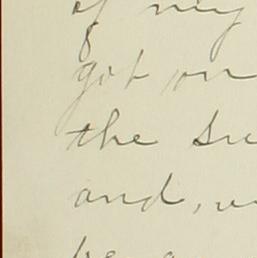 of my
got on
the su
and, w
be a